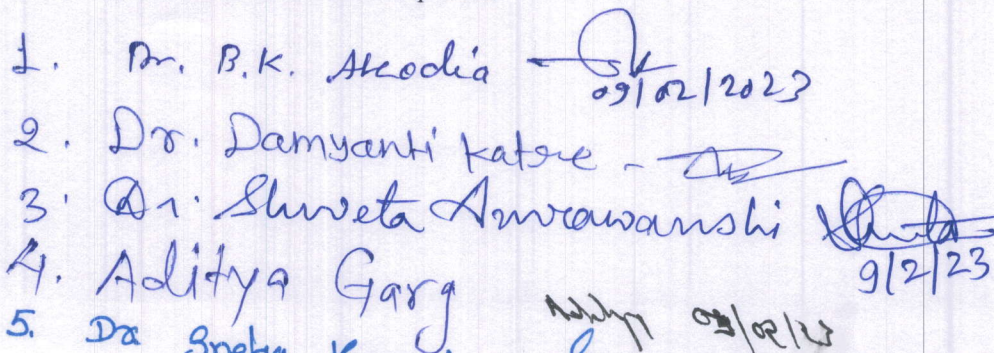 1. Dr. B.K. Akodia
09/02/2023
2. Dr. Damyanti Katre -
3. Dr. Shweta Amrawanshi
9/2/23
4. Aditya Garg
09/02/23
5. Dr Sneha